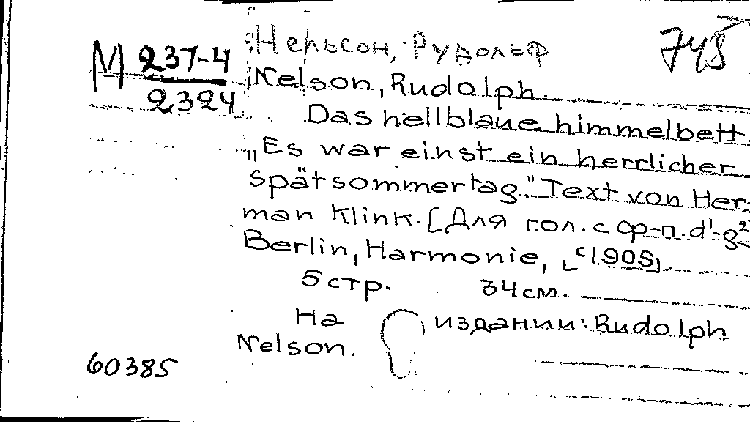 Нельсон, Рудольф
745
М 237-4
2324
Nelson, Rudolph.
Das hellblaue himmelbett.
„Es war einst ein herrlicher
spätsommertag." Text von Her-
man Klink. [Для гол. с ф-п. d¹-g²]
Berlin, Harmonie, [c1905]
5 стр. 34 см.
На издании: Rudolph
Nelson.
60385